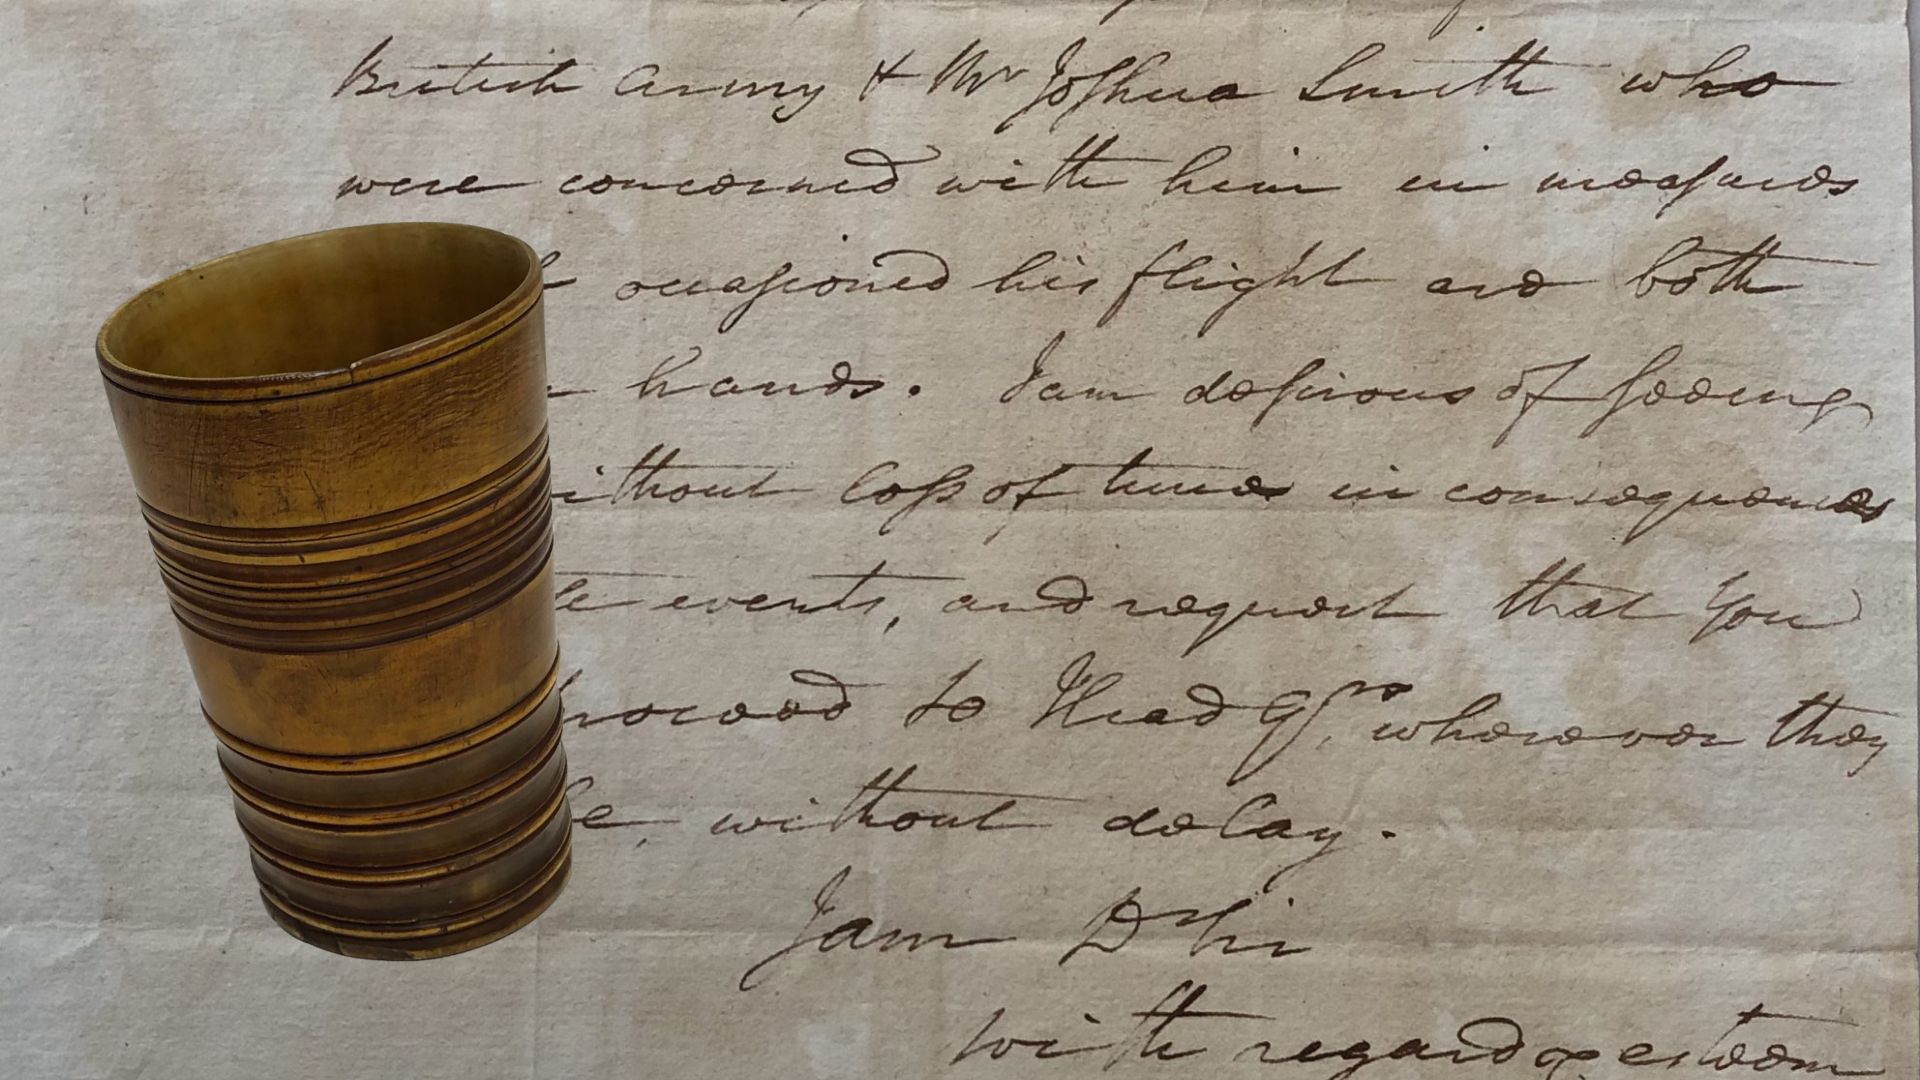 British Army & Mr Joſhua Smith who
were concerned with him in meaſures
occaſioned his flight are both
hands. I am deſirous of ſeeing
ithout loſs of time in consequences
events, and request that you
proceed to Head Qrs, wherever they
be, without delay.
I am Dr Sir
with regard & esteem